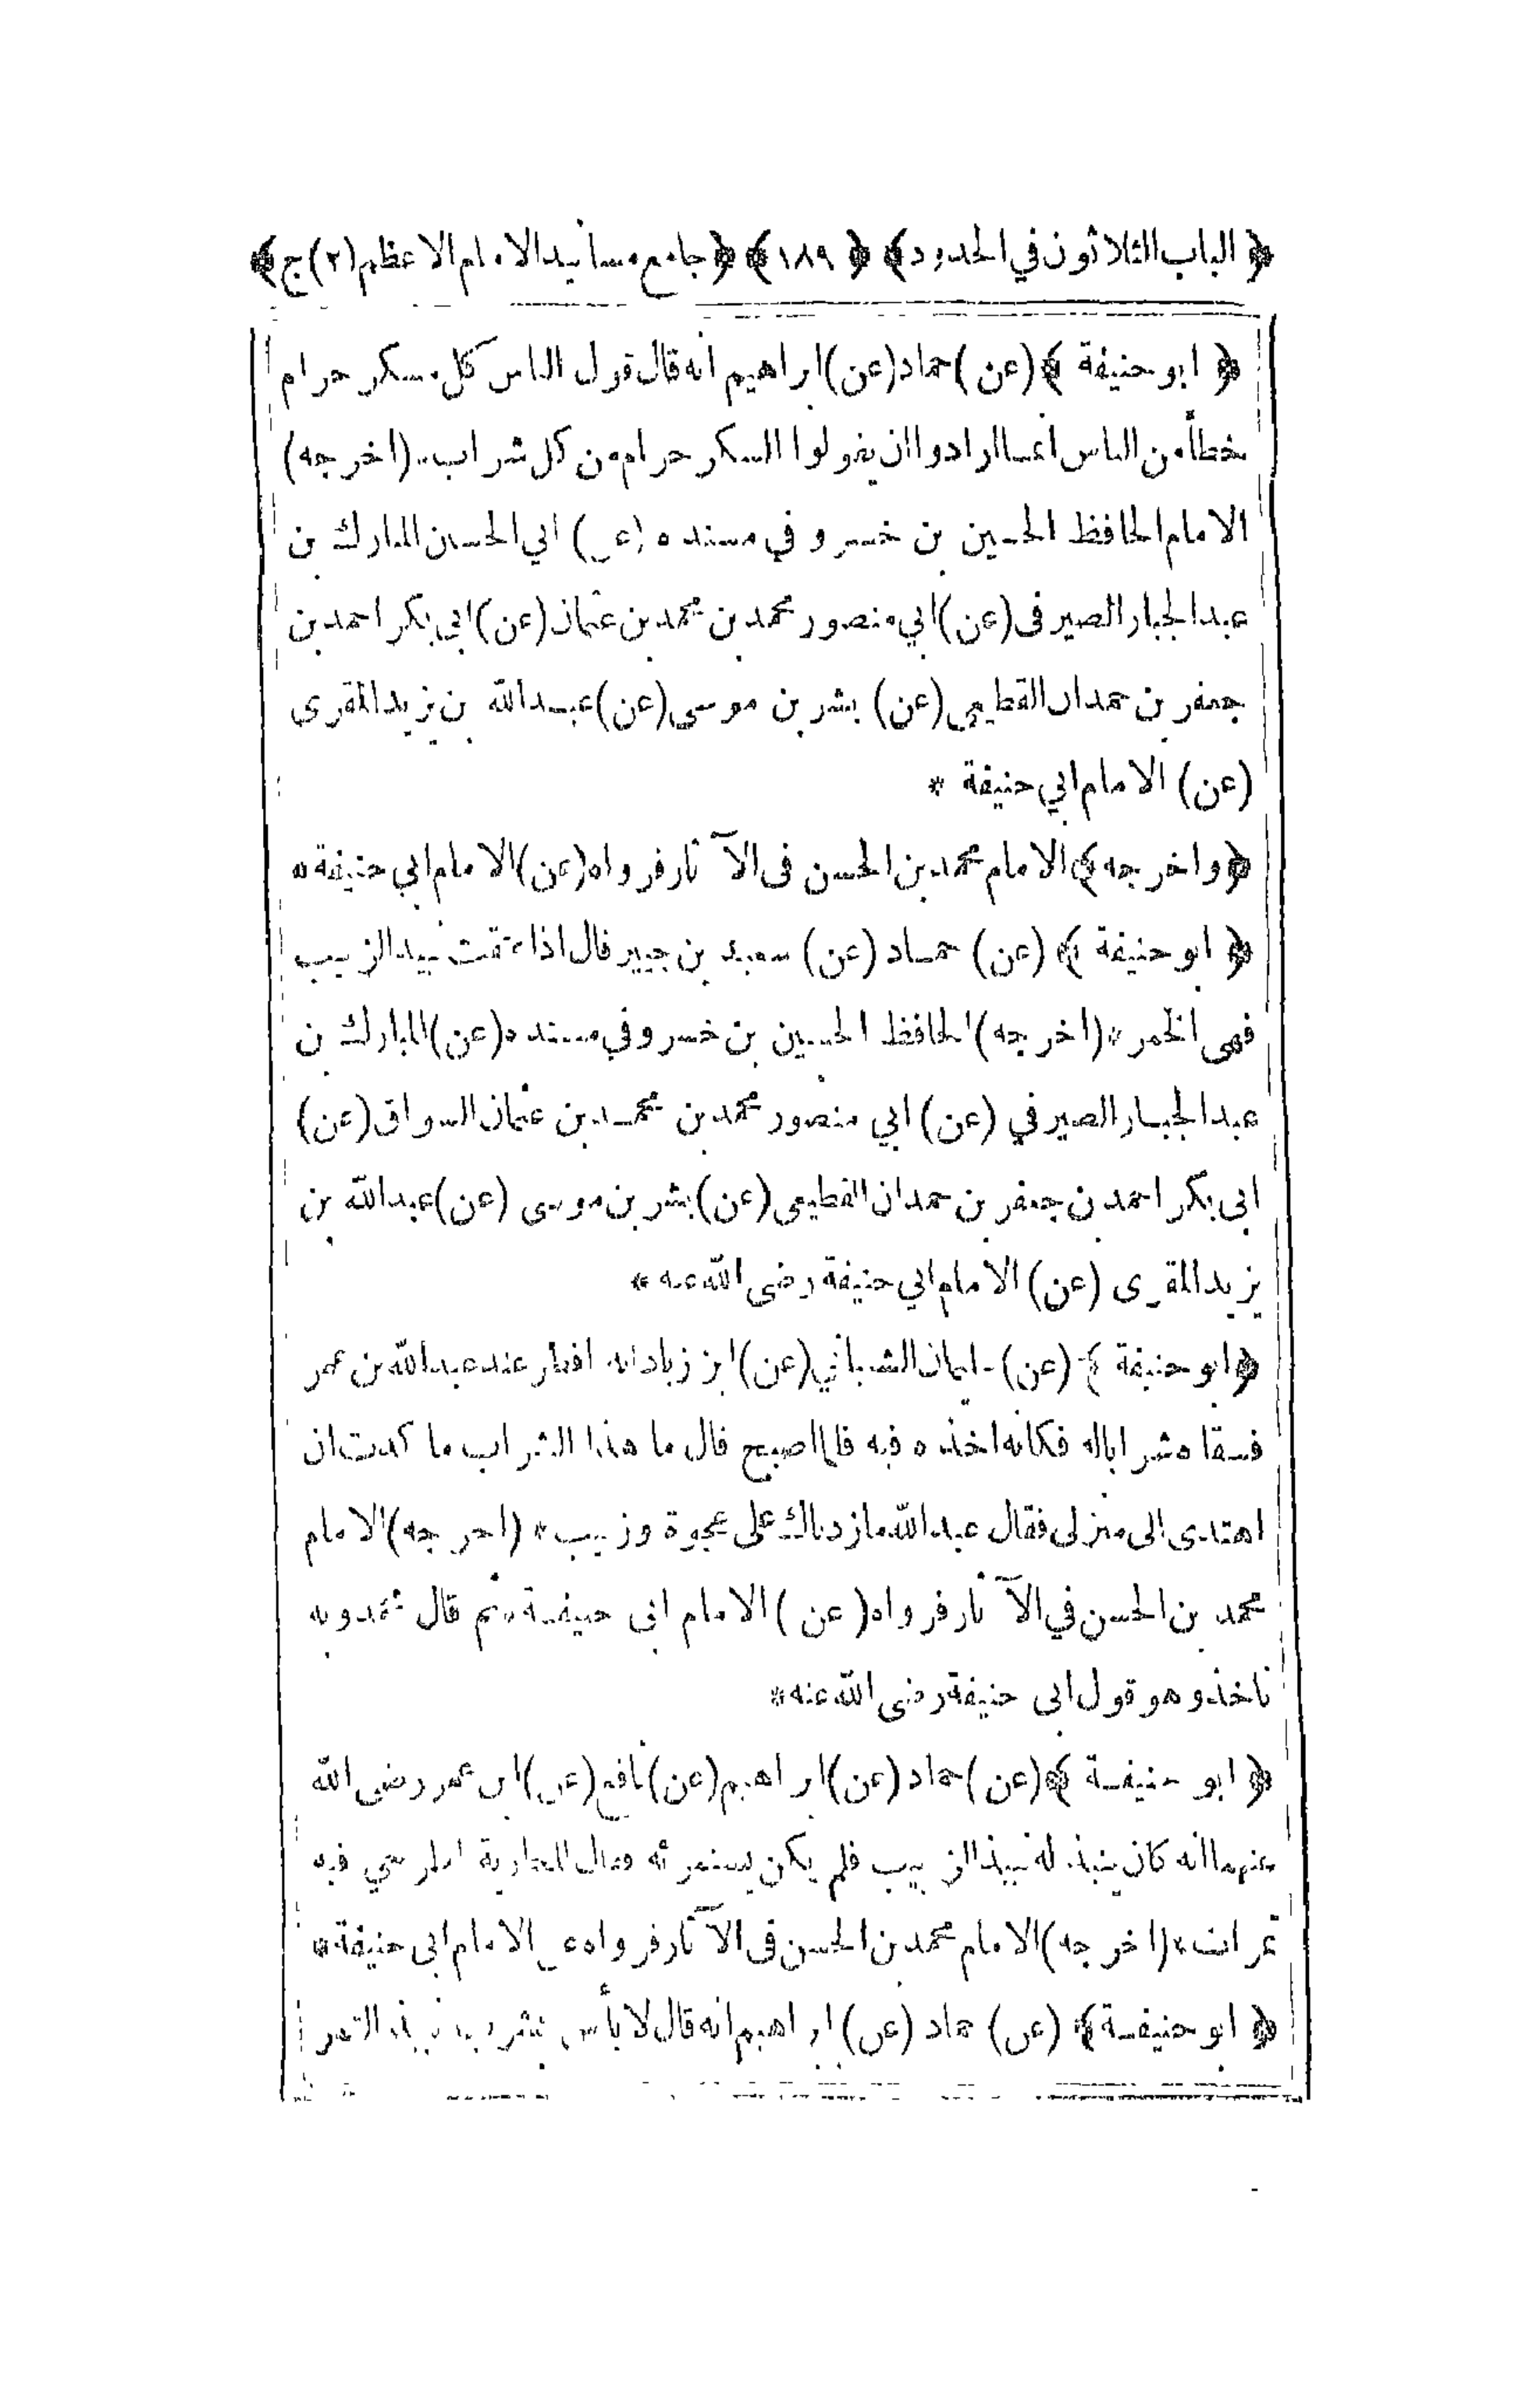 ﴿ الباب الثلاثون في الحدود ﴾ ﴿ ١٨٩ ﴾ ﴿ جامع مسانيد الامام الاعظم (٢) ج ﴾
﴿ ابو حنيفة ﴾ (عن) حماد (عن) ابراهيم انه قال قول الناس كل مسكر حرام
خطأ من الناس انما ارادوا ان يقولوا السكر حرام من كل شراب * (اخرجه)
الامام الحافظ الحسين بن خسرو في مسنده (عن) ابي الحسين المبارك بن
عبد الجبار الصيرفى (عن) ابي منصور محمد بن محمد بن عثمان (عن) ابي بكر احمد بن
جعفر بن حمدان القطيعي (عن) بشر بن موسى (عن) عبد الله بن يزيد المقرى
(عن) الامام ابي حنيفة *
﴿ واخرجه ﴾ الامام محمد بن الحسن فى الآثار فرواه (عن) الامام ابي حنيفة *
﴿ ابو حنيفة ﴾ (عن) حماد (عن) سعيد بن جبير قال اذا عتقت نبيذ الزبيب
فهى الخمر * (اخرجه) الحافظ الحسين بن خسرو في مسنده (عن) المبارك بن
عبد الجبار الصيرفي (عن) ابي منصور محمد بن محمد بن عثمان السواق (عن)
ابى بكر احمد بن جعفر بن حمدان القطيعى (عن) بشر بن موسى (عن) عبد الله بن
يزيد المقرى (عن) الامام ابي حنيفة رضى الله عنه *
﴿ ابو حنيفة ﴾ (عن) سليمان الشيباني (عن) ابن زياد انه افطر عند عبد الله بن عمر
فسقاه شرابا له فكأنه اخذه فيه فلما اصبح قال ما هذا الشراب ما كدت ان
اهتدى الى منزلى فقال عبد الله ما زدناك على عجوة وزبيب * (اخرجه) الامام
محمد بن الحسن في الآثار فرواه (عن) الامام ابى حنيفة * ثم قال محمد وبه
ناخذ وهو قول ابى حنيفة رضى الله عنه *
﴿ ابو حنيفة ﴾ (عن) حماد (عن) ابراهيم (عن) نافع (عن) ابن عمر رضى الله
عنهما انه كان ينبذ له نبيذ الزبيب فلم يكن يستمرئه فقال للجارية اطرحي فيه
تمرات * (اخرجه) الامام محمد بن الحسن فى الآثار فرواه عن الامام ابى حنيفة *
﴿ ابو حنيفة ﴾ (عن) حماد (عن) ابراهيم انه قال لا بأس بشرب نبيذ التمر